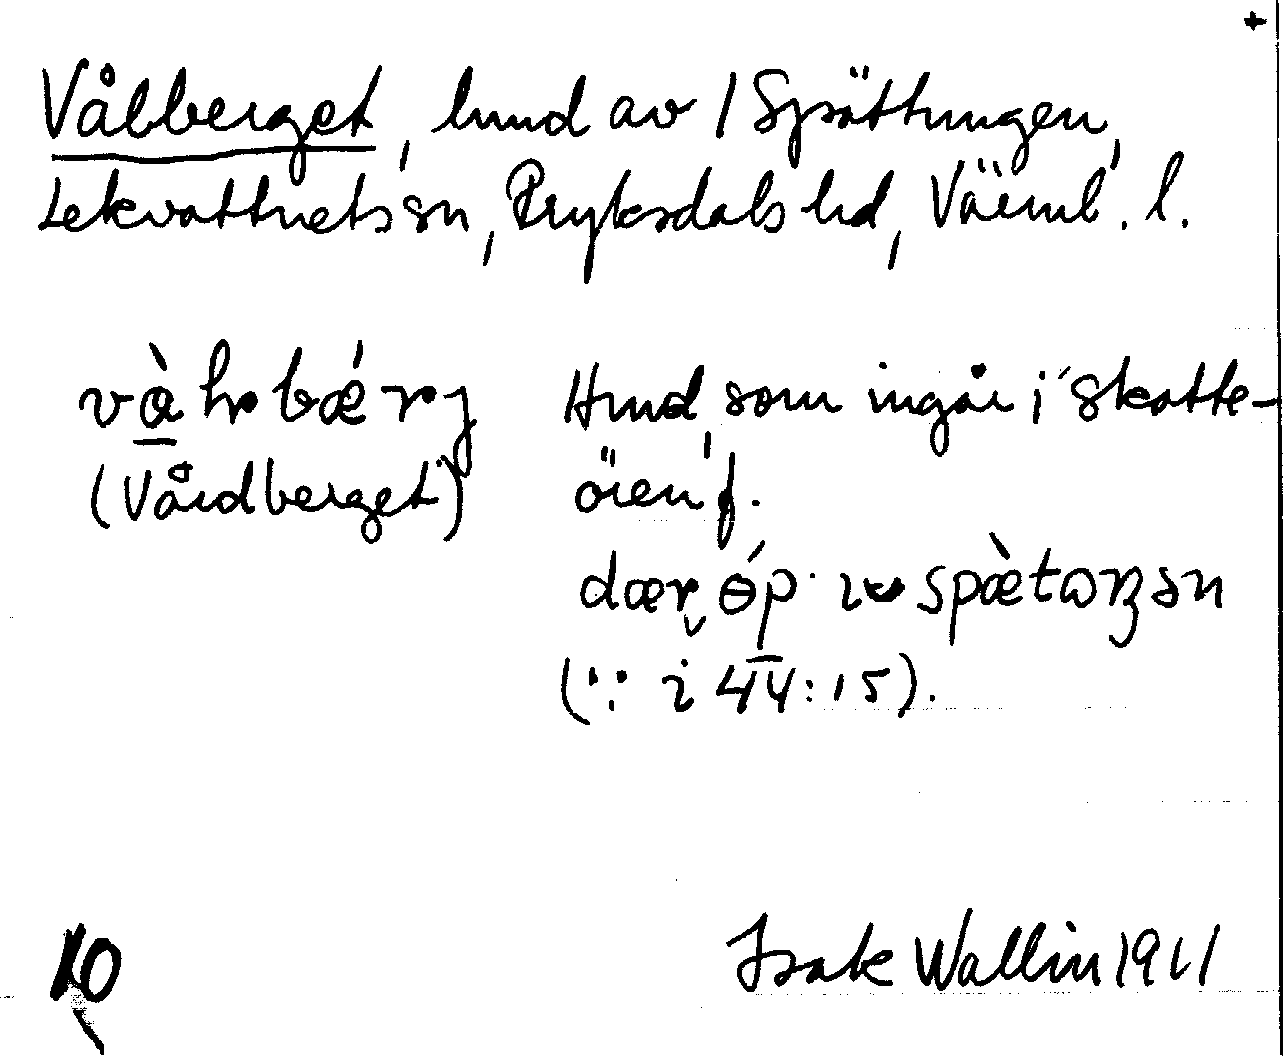 +
Vålberget, lund av 1 Spättungen,
Lekvattnets sn, Fryksdals hd, Värml. l.
(Vårdberget) Hund, som ingår i Skatte-
ören f.
(∵ i 44:15).
10
Isak Wallin 1911